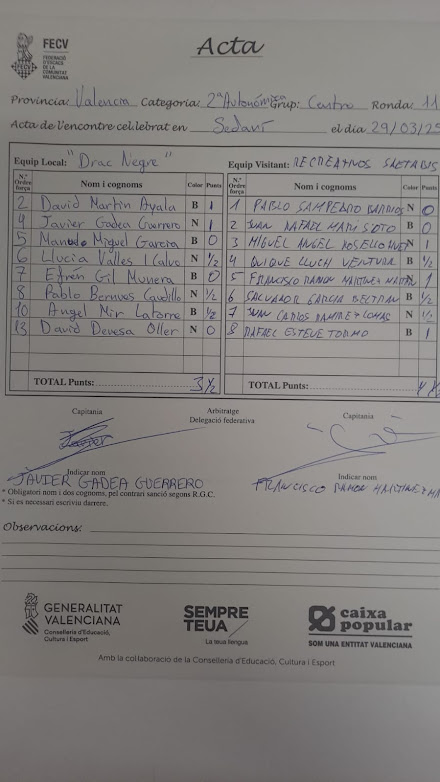 FECV
FEDERACIÓ
D'ESCACS
DE LA
COMUNITAT
VALENCIANA
Acta
Província: Valencia Categoria: 2ª Autonómica Grup: Centro Ronda: 11
Acta de l'encontre cel·lebrat en Sedaví el dia 29/03/25
Equip Local: "Drac Negre" Equip Visitant: RECREATIVOS SAETABIS
N.º Ordre força Nom i cognoms Color Punts N.º Ordre força Nom i cognoms Color Punts
2 David Martin Ayala B 1 1 PABLO SAMPEDRO BARRIOS N 0
4 Javier Gadea Guerrero N 1 2 JUAN RAFAEL MARTI SOTO B 0
5 Manuel Miguel Garcia B 0 3 MIGUEL ANGEL ROSELLO N 1
6 Llucia Valles 1/2 N 4 QUIQUE LLUCH VENTURA B 1/2
7 Efrén Gil Munera B 0 5 FRANCISCO RAMON MARTINEZ N 1
8 Pablo Bernues Caudillo N 1/2 6 SALVADOR GARCIA BELTRAN B 1/2
10 Angel Mir Latorre B 1/2 7 JUAN CARLOS RAMIREZ LOMAS N 1/2
13 David Devesa Oller N 0 8 RAFAEL ESTEVE TORMO B 1
TOTAL Punts: 3 1/2 TOTAL Punts: 4
Capitania Arbitratge Capitania
Delegació federativa
Javier
Indicar nom Indicar nom
JAVIER GADEA GUERRERO FRANCISCO RAMON MARTINEZ
* Obligatori nom i dos cognoms, pel contrari sanció segons R.G.C.
* Si es necessari escriviu darrere.
Observacions:
GENERALITAT
VALENCIANA
Conselleria d'Educació,
Cultura i Esport
SEMPRE
TEUA
La teua llengua
caixa
popular
SOM UNA ENTITAT VALENCIANA
Amb la col·laboració de la Conselleria d'Educació, Cultura i Esport